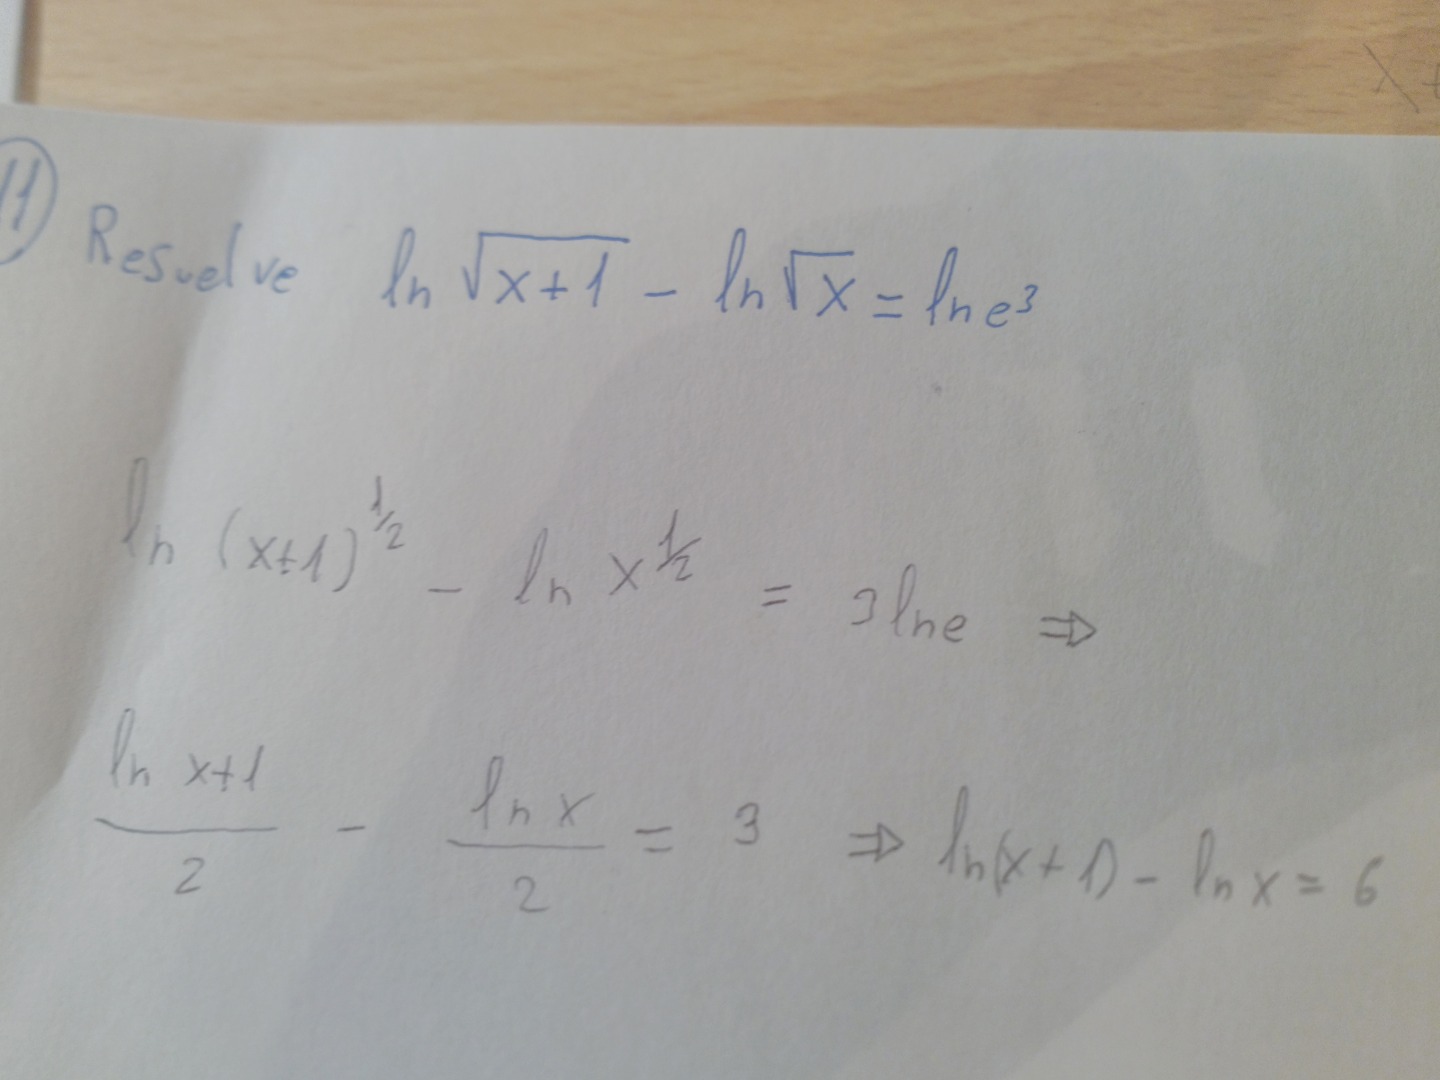 11 Resuelve ln √x+1 - ln √x = ln e³
ln (x+1)^½ - ln x^½ = 3 ln e ⇒
ln x+1 / 2 - ln x / 2 = 3 ⇒ ln(x+1) - ln x = 6